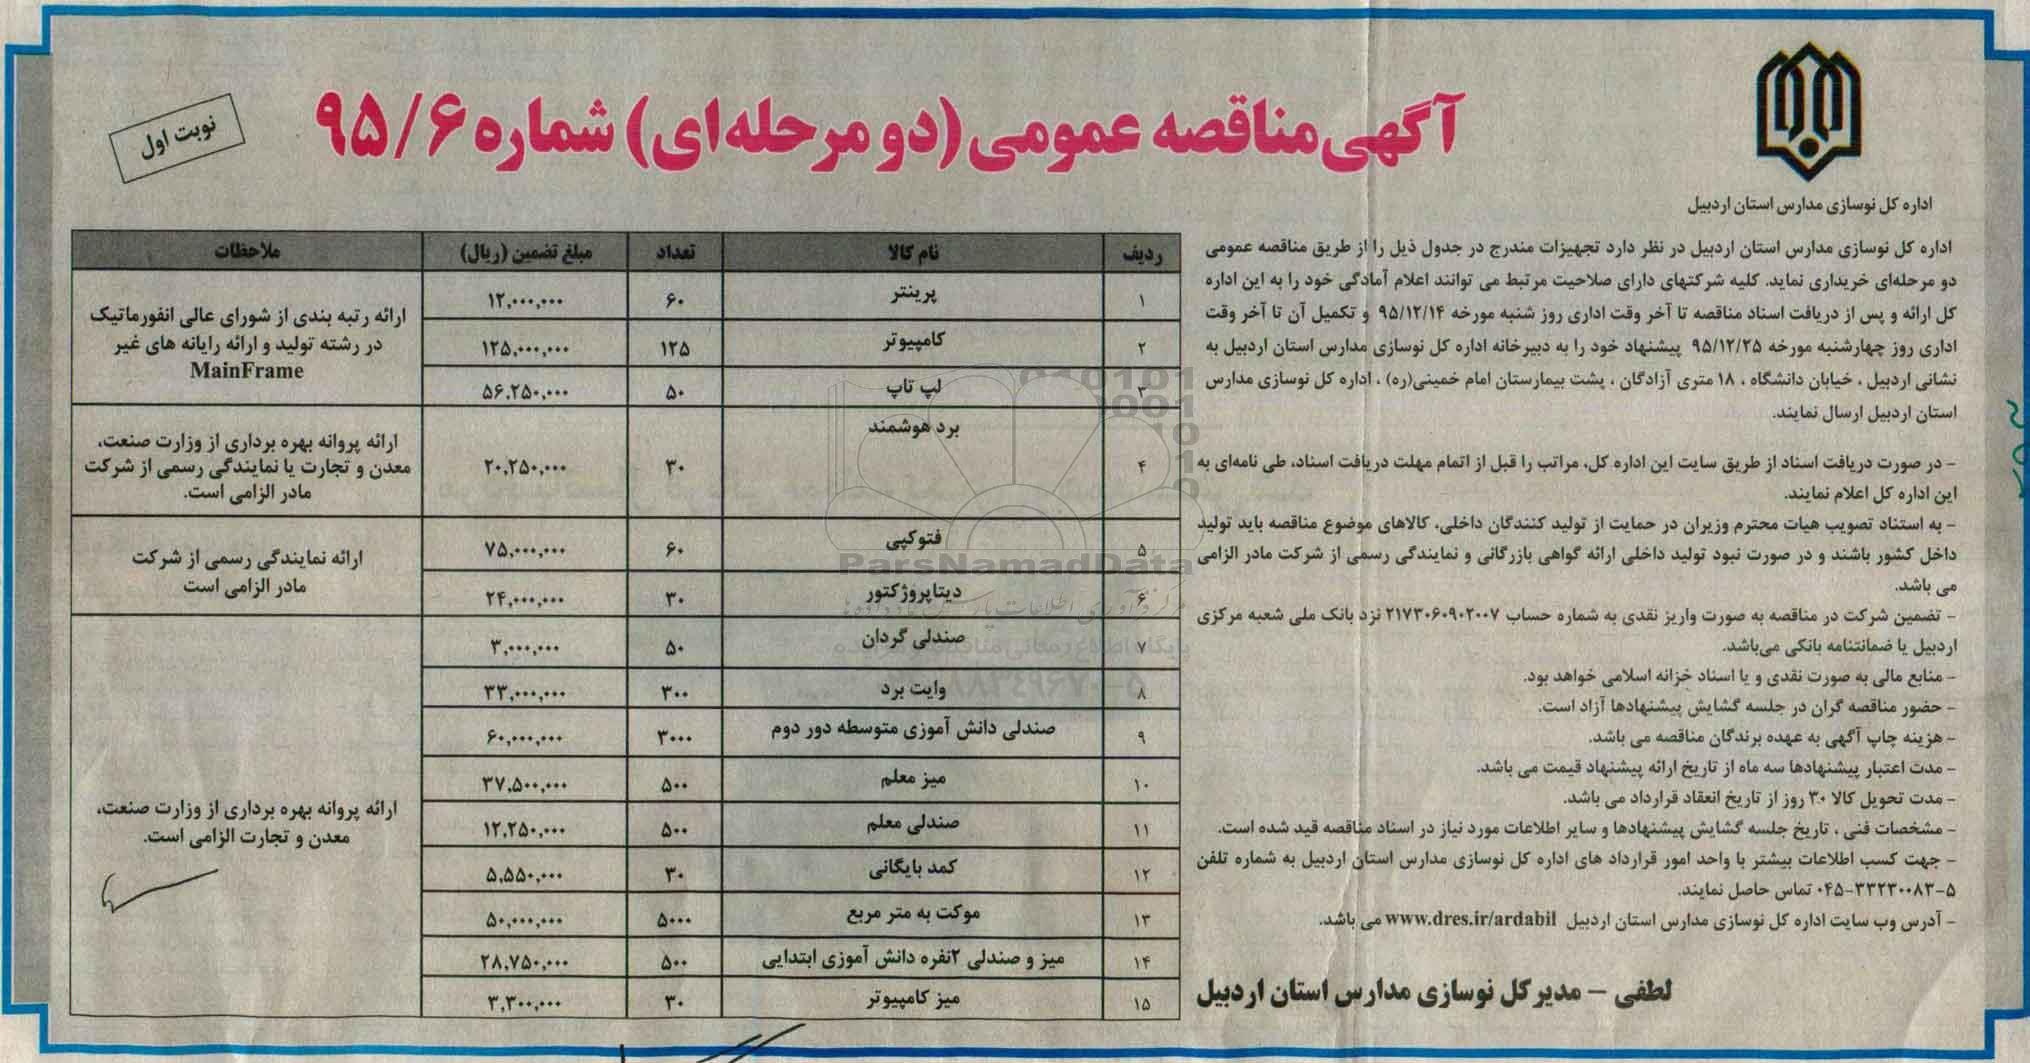 آگهی مناقصه عمومی (دو مرحله‌ای) شماره ۹۵/۶
نوبت اول
اداره کل نوسازی مدارس استان اردبیل
اداره کل نوسازی مدارس استان اردبیل در نظر دارد تجهیزات مندرج در جدول ذیل را از طریق مناقصه عمومی
دو مرحله‌ای خریداری نماید. کلیه شرکتهای دارای صلاحیت مرتبط می توانند اعلام آمادگی خود را به این اداره
کل ارائه و پس از دریافت اسناد مناقصه تا آخر وقت اداری روز شنبه مورخه ۹۵/۱۲/۱۴ و تکمیل آن تا آخر وقت
اداری روز چهارشنبه مورخه ۹۵/۱۲/۲۵ پیشنهاد خود را به دبیرخانه اداره کل نوسازی مدارس استان اردبیل به
نشانی اردبیل ، خیابان دانشگاه ، ۱۸ متری آزادگان ، پشت بیمارستان امام خمینی(ره) ، اداره کل نوسازی مدارس
استان اردبیل ارسال نمایند.
- در صورت دریافت اسناد از طریق سایت این اداره کل، مراتب را قبل از اتمام مهلت دریافت اسناد، طی نامه‌ای به
این اداره کل اعلام نمایند.
- به استناد تصویب هیات محترم وزیران در حمایت از تولید کنندگان داخلی، کالاهای موضوع مناقصه باید تولید
داخل کشور باشند و در صورت نبود تولید داخلی ارائه گواهی بازرگانی و نمایندگی رسمی از شرکت مادر الزامی
می باشد.
- تضمین شرکت در مناقصه به صورت واریز نقدی به شماره حساب ۲۱۷۳۰۶۰۹۰۲۰۰۷ نزد بانک ملی شعبه مرکزی
اردبیل یا ضمانتنامه بانکی می‌باشد.
- منابع مالی به صورت نقدی و یا اسناد خزانه اسلامی خواهد بود.
- حضور مناقصه گران در جلسه گشایش پیشنهادها آزاد است.
- هزینه چاپ آگهی به عهده برندگان مناقصه می باشد.
- مدت اعتبار پیشنهادها سه ماه از تاریخ ارائه پیشنهاد قیمت می باشد.
- مدت تحویل کالا ۳۰ روز از تاریخ انعقاد قرارداد می باشد.
- مشخصات فنی ، تاریخ جلسه گشایش پیشنهادها و سایر اطلاعات مورد نیاز در اسناد مناقصه قید شده است.
- جهت کسب اطلاعات بیشتر با واحد امور قرارداد های اداره کل نوسازی مدارس استان اردبیل به شماره تلفن
۰۴۵-۳۳۲۳۰۰۸۳-۵ تماس حاصل نمایند.
- آدرس وب سایت اداره کل نوسازی مدارس استان اردبیل www.dres.ir/ardabil می باشد.
لطفی – مدیرکل نوسازی مدارس استان اردبیل
ردیف نام کالا تعداد مبلغ تضمین (ریال) ملاحظات
۱ پرینتر ۶۰ ۱۲,۰۰۰,۰۰۰
۲ کامپیوتر ۱۲۵ ۱۲۵,۰۰۰,۰۰۰
۳ لپ تاپ ۵۰ ۵۶,۲۵۰,۰۰۰
ارائه رتبه بندی از شورای عالی انفورماتیک
در رشته تولید و ارائه رایانه های غیر
MainFrame
۴ برد هوشمند ۳۰ ۲۰,۲۵۰,۰۰۰
ارائه پروانه بهره برداری از وزارت صنعت،
معدن و تجارت یا نمایندگی رسمی از شرکت
مادر الزامی است.
۵ فتوکپی ۶۰ ۷۵,۰۰۰,۰۰۰
۶ دیتاپروژکتور ۳۰ ۲۴,۰۰۰,۰۰۰
ارائه نمایندگی رسمی از شرکت
مادر الزامی است
۷ صندلی گردان ۵۰ ۳,۰۰۰,۰۰۰
۸ وایت برد ۳۰۰ ۳۳,۰۰۰,۰۰۰
۹ صندلی دانش آموزی متوسطه دور دوم ۳۰۰۰ ۶۰,۰۰۰,۰۰۰
۱۰ میز معلم ۵۰۰ ۳۷,۵۰۰,۰۰۰
۱۱ صندلی معلم ۵۰۰ ۱۲,۲۵۰,۰۰۰
۱۲ کمد بایگانی ۳۰ ۵,۵۵۰,۰۰۰
۱۳ موکت به متر مربع ۵۰۰۰ ۵۰,۰۰۰,۰۰۰
۱۴ میز و صندلی ۲نفره دانش آموزی ابتدایی ۵۰۰ ۲۸,۷۵۰,۰۰۰
۱۵ میز کامپیوتر ۳۰ ۳,۳۰۰,۰۰۰
ارائه پروانه بهره برداری از وزارت صنعت،
معدن و تجارت الزامی است.
ParsNamadData
۸۸۳۴۹۶۷۰-۵